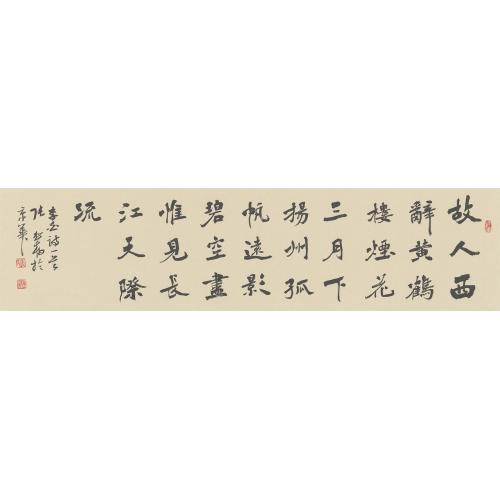 故人西
辭黃鶴
樓煙花
三月下
揚州孤
帆遠影
碧空盡
惟見長
江天際
流
李白詩一首
張 於
京華